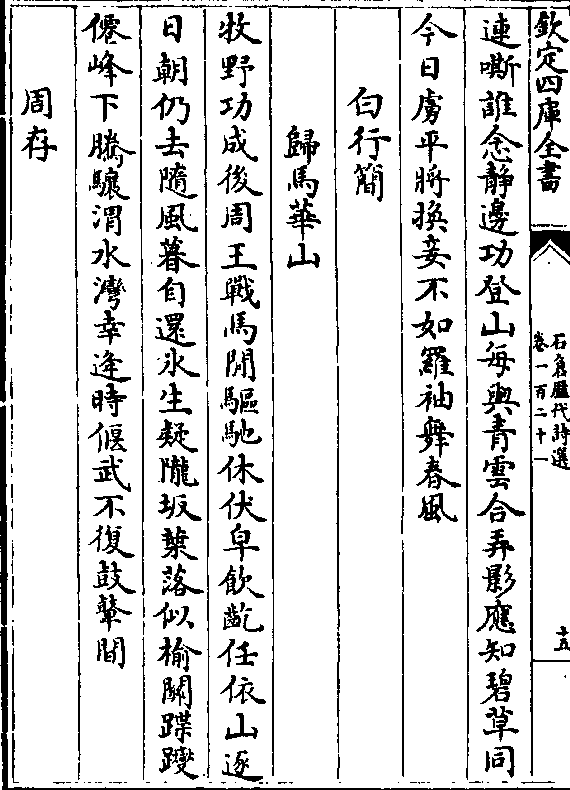 欽定四庫全書
石倉歷代詩選
卷一百二十一
十五
連嘶誰念靜邊功登山每與青雲合弄影應知碧草同
今日虜平將換妾不如羅袖舞春風
白行簡
歸馬華山
牧野功成後周王戰馬閒驅馳休伏皁飲齕任依山逐
日朝仍去隨風暮自還氷生疑隴坂葉落似榆關蹀躞
僊峰下騰驤渭水灣幸逢時偃武不復鼓鼙間
周存